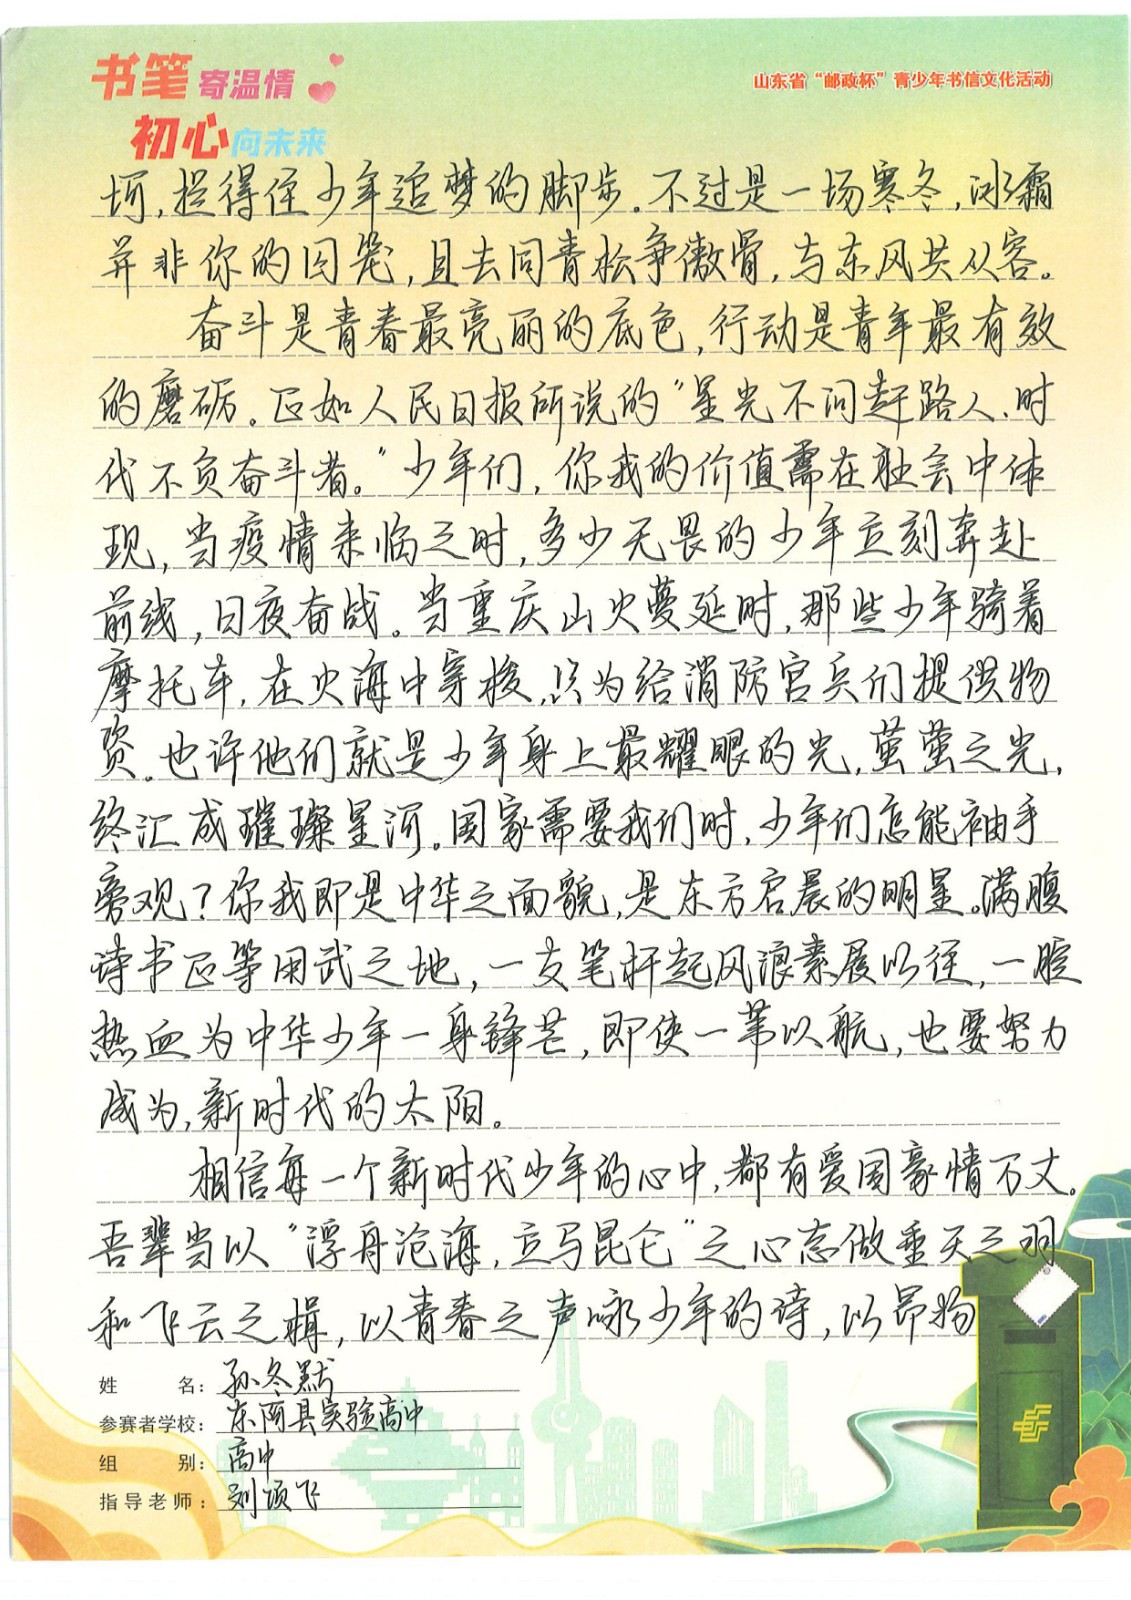 书笔寄温情
初心向未来
山东省“邮政杯”青少年书信文化活动
坷，拦得住少年追梦的脚步。不过是一场寒冬，冰霜
并非你的囚笼，且去同青松争傲骨，与东风共从容。
奋斗是青春最亮丽的底色，行动是青年最有效
的磨砺。正如人民日报所说的“星光不问赶路人、时
代不负奋斗者。”少年们，你我的价值需在社会中体
现，当疫情来临之时，多少无畏的少年立刻奔赴
前线，日夜奋战。当重庆山火蔓延时，那些少年骑着
摩托车，在火海中穿梭，只为给消防官兵们提供物
资。也许他们就是少年身上最耀眼的光，萤萤之光，
终汇成璀璨星河。国家需要我们时，少年们怎能袖手
旁观？你我即是中华之面貌，是东方启晨的明星。满腹
诗书正等用武之地，一支笔杆起风浪素履以往，一腔
热血为中华少年一身锋芒，即使一苇以航，也要努力
成为，新时代的太阳。
相信每一个新时代少年的心中，都有爱国豪情万丈。
吾辈当以“浮舟沧海，立马昆仑”之心志做垂天之羽
和飞云之楫，以青春之声咏少年的诗，以昂扬
姓名：孙冬默
参赛者学校：东阿县实验高中
组别：高中
指导老师：刘颂飞